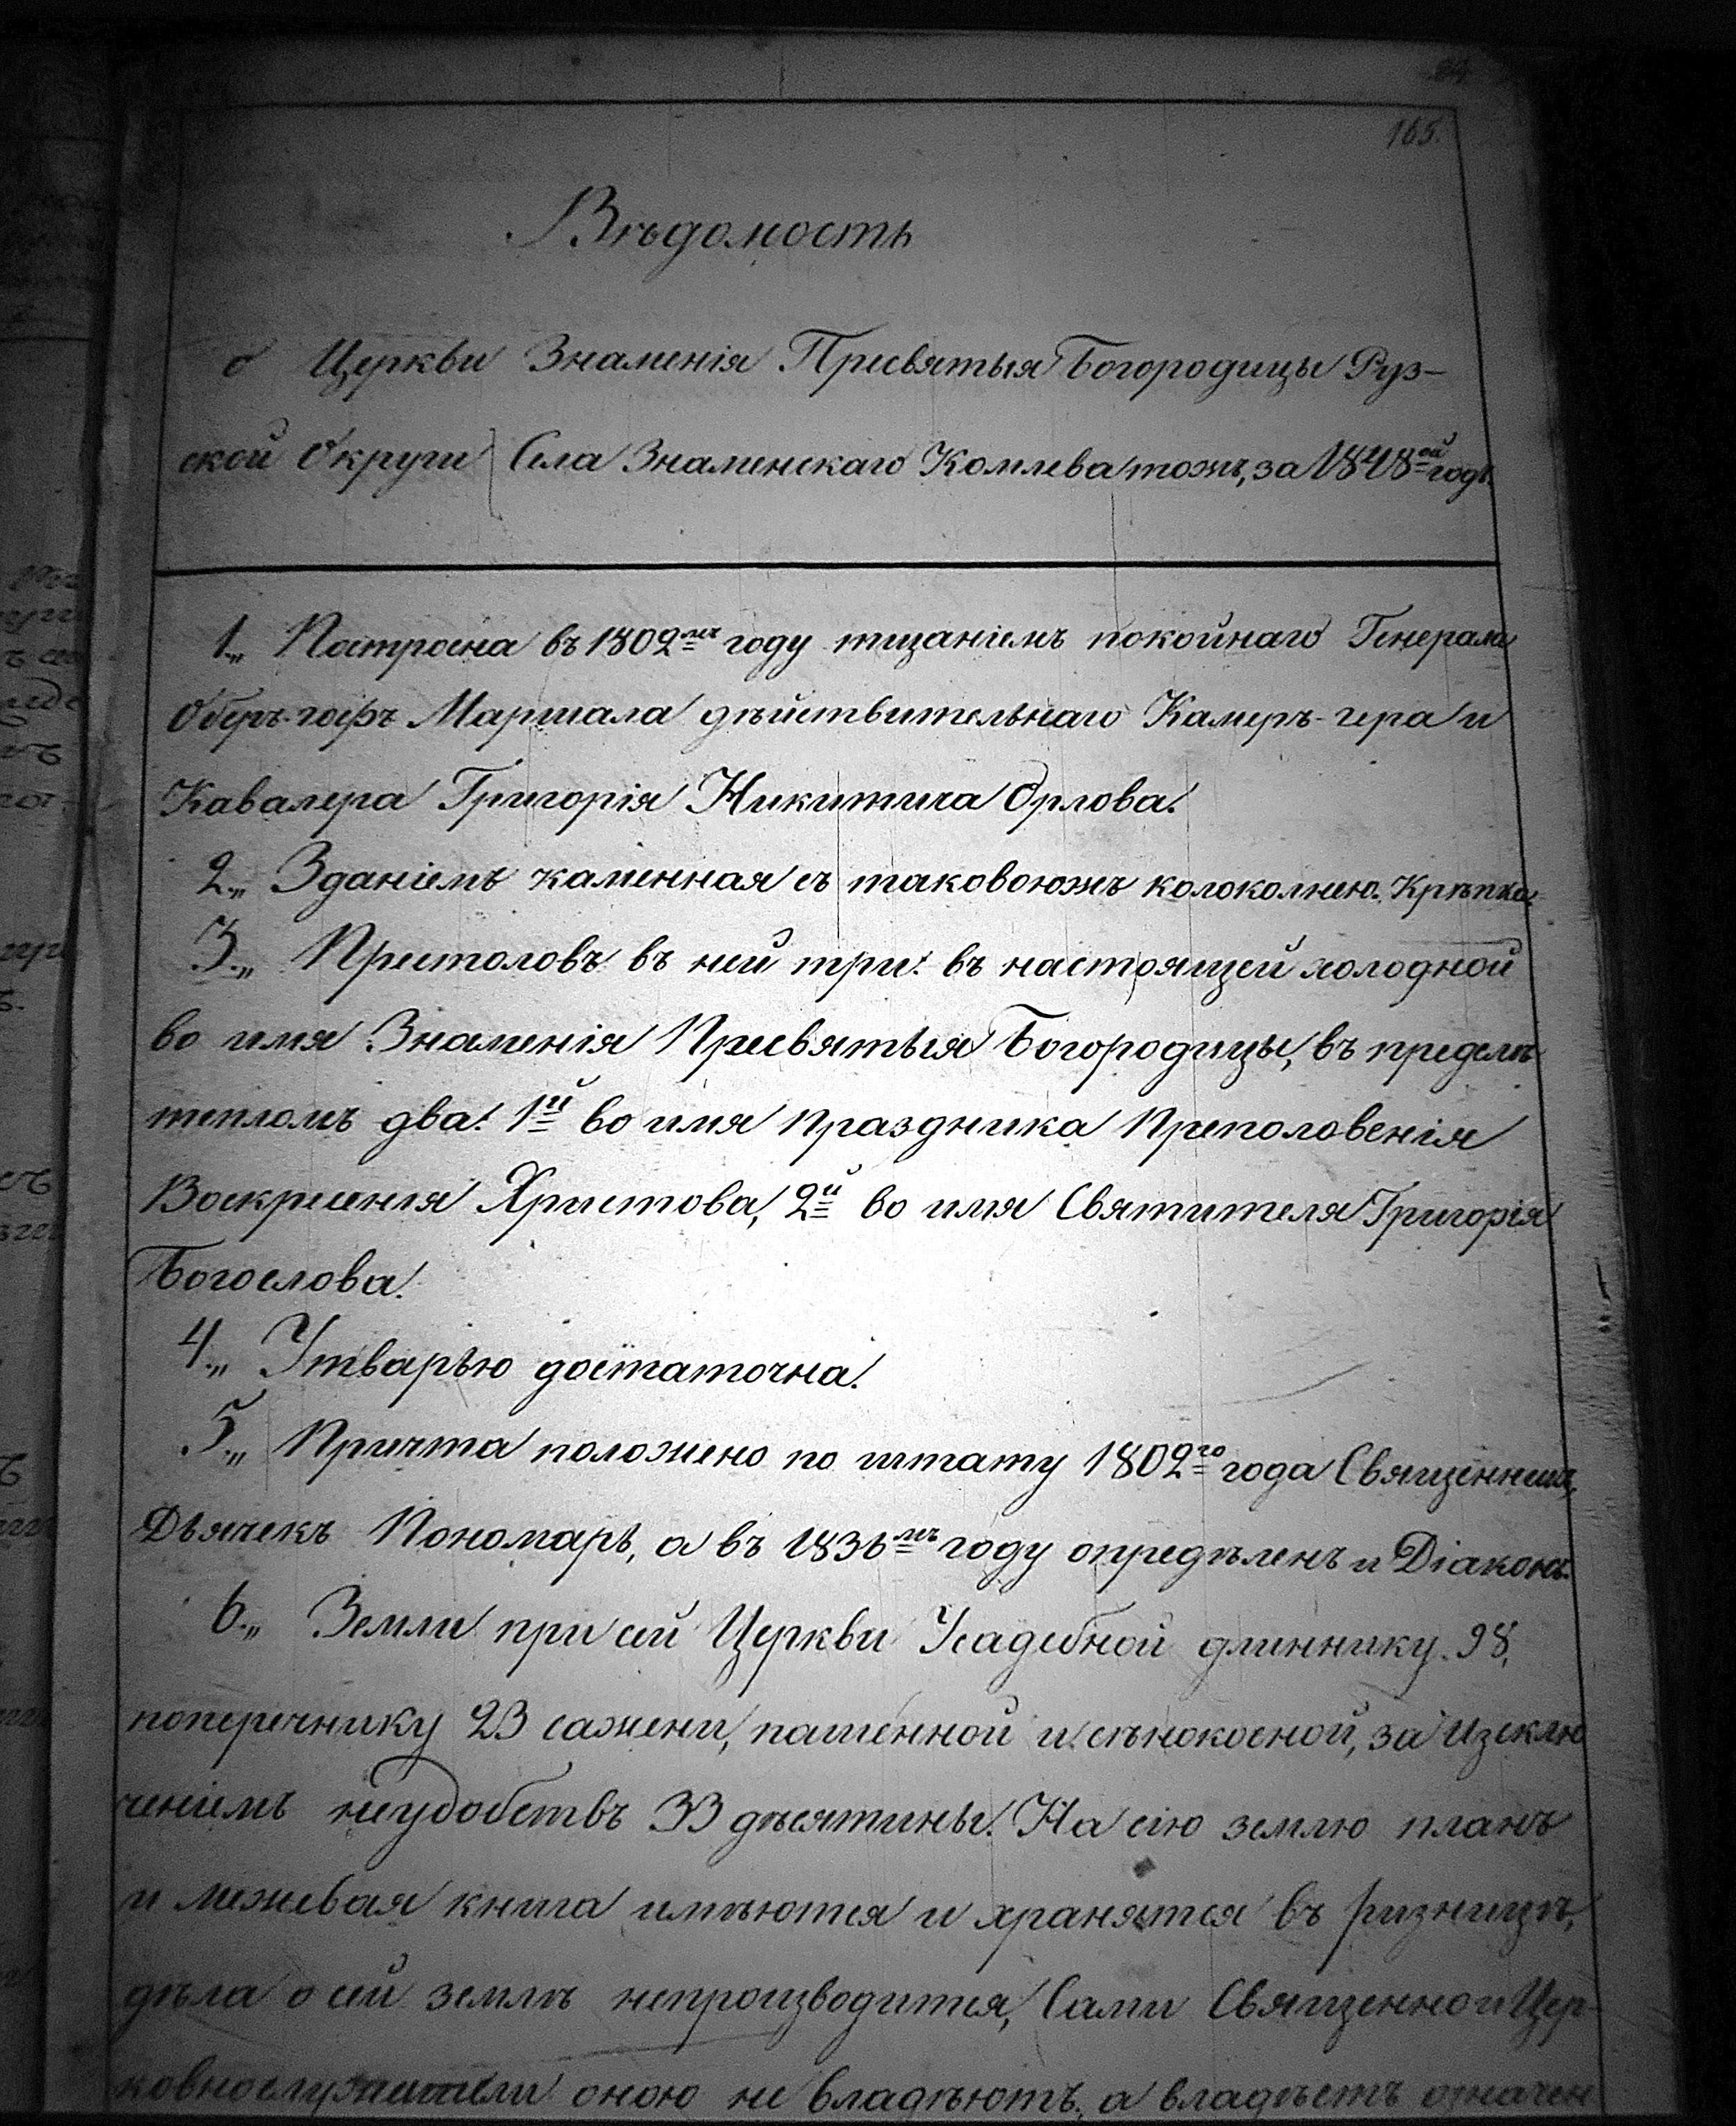 165.
Вѣдомость
о Церкви Знаменія Пресвятыя Богородицы Руз-
ской Округи Села Знаменскаго Комлева тожъ, за 1848ой годъ.
1., Построена въ 1802мъ году тщаніемъ покойнаго Генерала
Оберъ-гофъ Маршала дѣйствительнаго Камеръ-гера и
Кавалера Григорія Никитича Орлова.
2., Зданіемъ каменная съ таковоюжъ колокольнею. Крѣпка.
3., Престоловъ въ ней три: въ настоящей холодной
во имя Знаменія Пресвятыя Богородицы, въ пределѣ
тепломъ два: 1й во имя праздника Преполовенія
Воскресенія Христова, 2й во имя Святителя Григорія
Богослова.
4., Утварью достаточна.
5., Причта положено по штату 1802го года Священникъ,
Дьячекъ Пономарь, а въ 1836мъ году опредѣленъ и Діаконъ.
6., Земли при сей Церкви Усадебной длиннику 98,
поперечнику 23 сажени, пашенной и сѣнокосной, за изклю
ченіемъ неудобствъ 33 десятины. На сію землю планъ
и межевая книга имѣются и хранятся въ ризницѣ,
дѣла о сей землѣ непроизводится, Сами Священно и Цер-
ковнослужители оною не владѣютъ, а владѣетъ означен